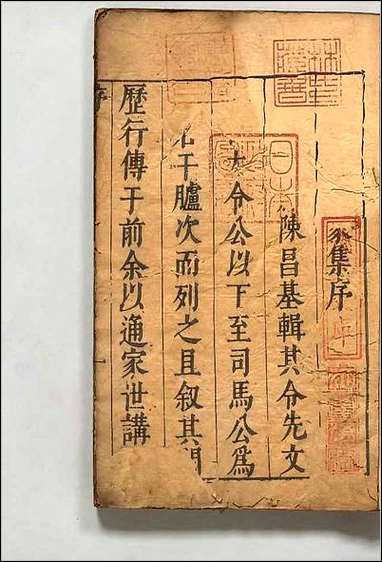 集序
陳昌基輯其令先文
大令公以下至司馬公為
若干臚次而列之且叙其
歷行傳于前余以通家世講
序